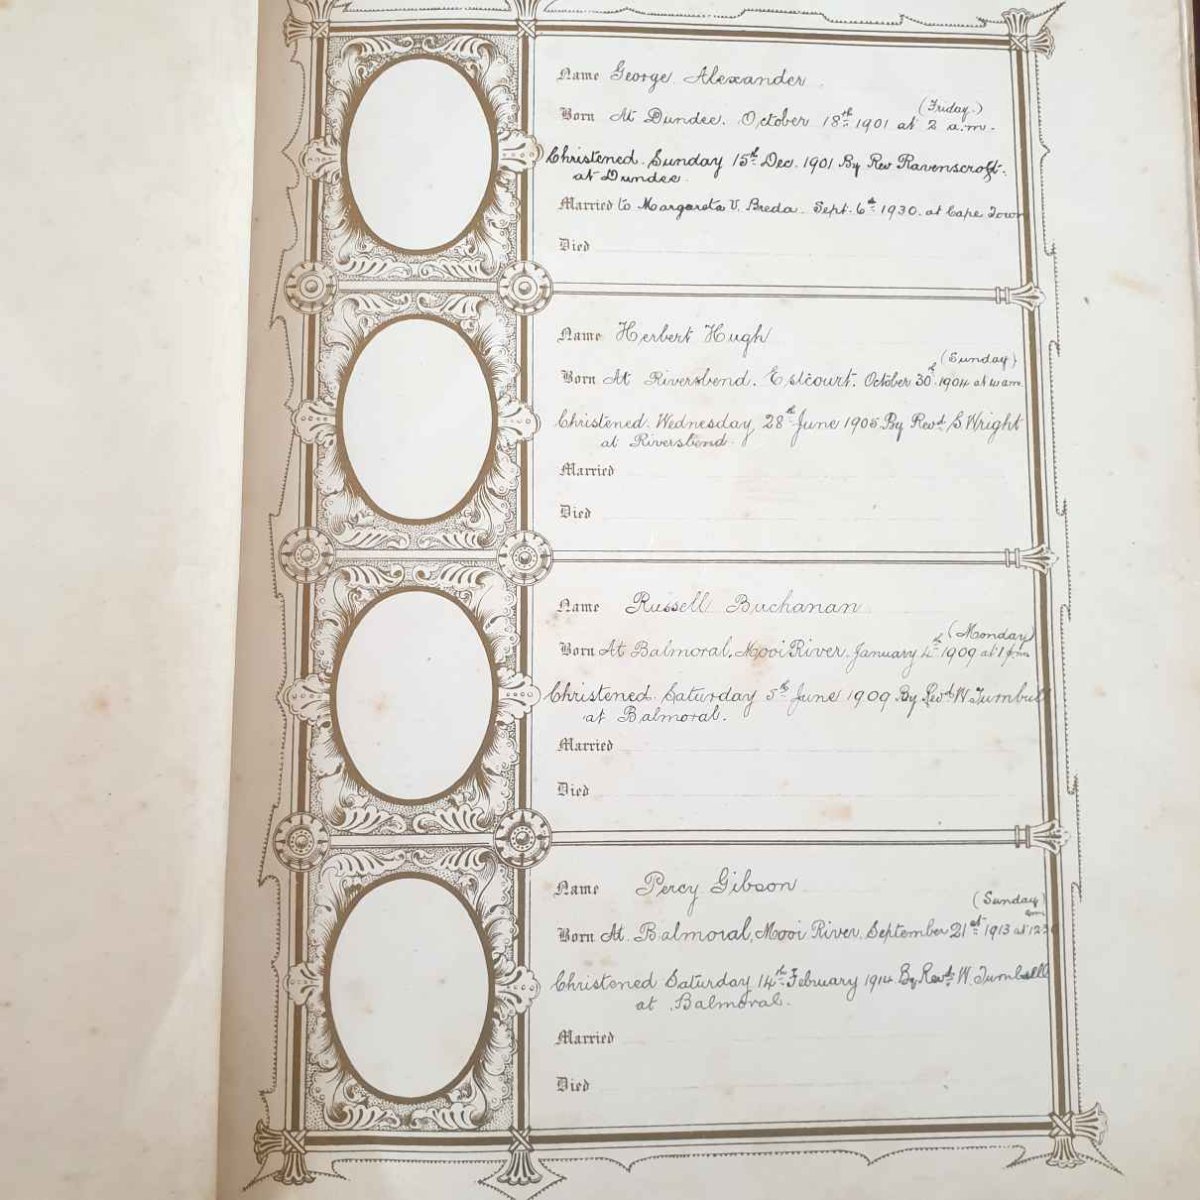 Name George Alexander
(Friday.)
Born At Dundee. October 18th 1901 at 2 a.m.
Christened. Sunday 15th Dec. 1901 By Rev Ravenscroft.
at Dundee.
Married to Margareta V. Breda. Sept. 6th 1930. at Cape Town
Died
Name Herbert Hugh
(Sunday)
Born At Riversbend. Estcourt. October 30th 1904 at 10 am.
Christened. Wednesday, 28th June 1905 By Revd S Wright
at Riversbend.
Married
Died
Name Russell Buchanan
(Monday)
Born At Balmoral. Mooi River. January 4th 1909 at 1 pm
Christened. Saturday 5th June 1909 By Revd W. Turnbull
at Balmoral.
Married
Died
Name Percy Gibson
(Sunday)
am
Born At Balmoral, Mooi River. September 21st 1913 at
Christened Saturday 14th February 1914 By Revd W. Turnbull
at Balmoral.
Married
Died